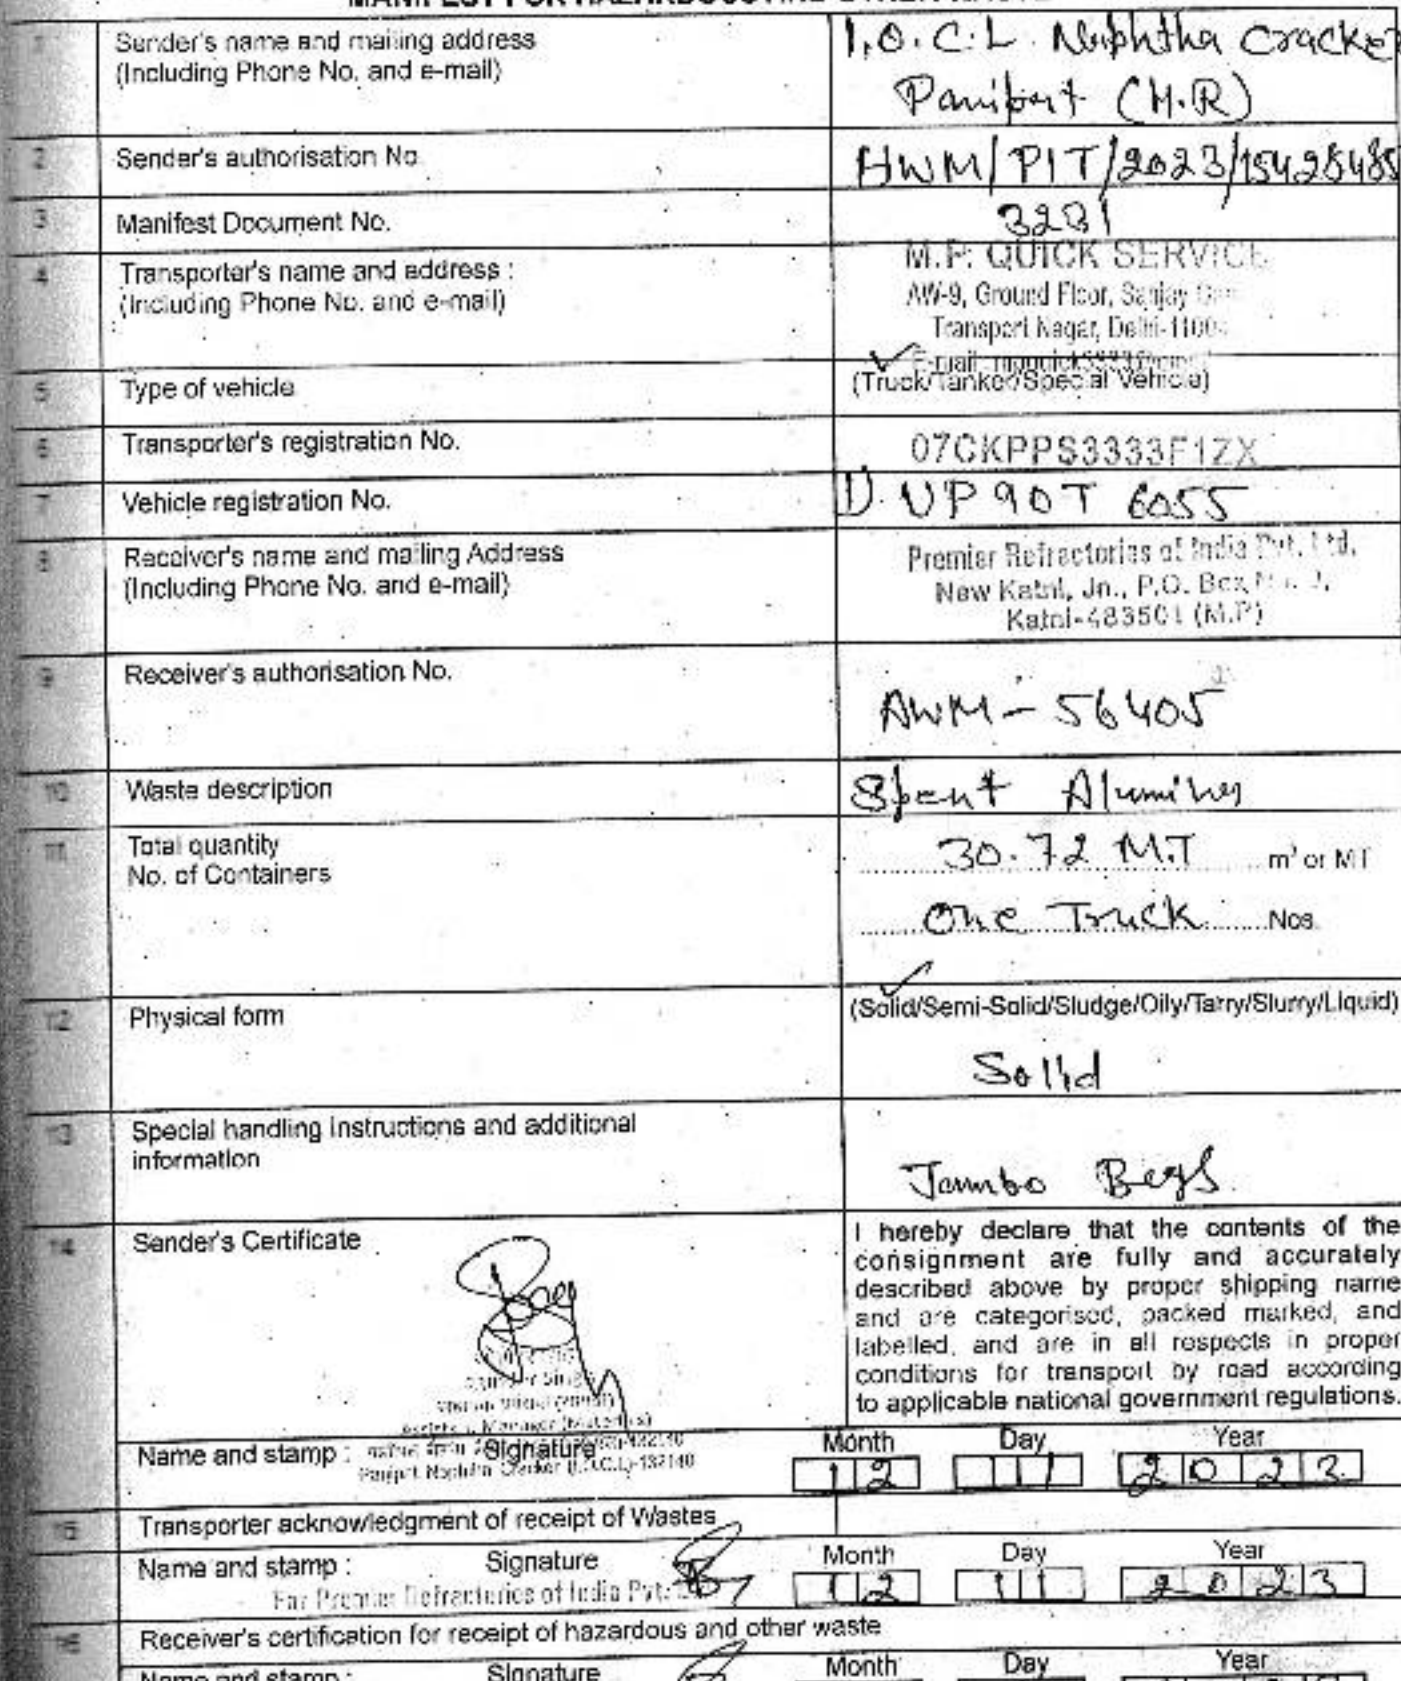 MANIFEST FOR HAZARDOUS AND OTHER WASTE
1 Sender's name and mailing address
(Including Phone No. and e-mail)
I.O.C.L. Naphtha Cracker
Panipat (H.R)
2 Sender's authorisation No
HWM/PIT/2023/15428485
3 Manifest Document No.
3231
4 Transporter's name and address :
(Including Phone No. and e-mail)
M.P. QUICK SERVICE
AW-9, Ground Floor, Sanjay
Transport Nagar, Delhi-1100
E-mail :
5 Type of vehicle
(Truck/Tanker/Special Vehicle)
6 Transporter's registration No.
07CKPPS3333F1ZX
7 Vehicle registration No.
UP 90T 6055
8 Receiver's name and mailing Address
(Including Phone No. and e-mail)
Premier Refractories of India Pvt. Ltd.
New Katni, Jn., P.O. Box
Katni-483501 (M.P)
9 Receiver's authorisation No.
AWM - 56405
10 Waste description
Spent Alumina
11 Total quantity
No. of Containers
30.72 M.T m³ or MT
One Truck Nos.
12 Physical form
(Solid/Semi-Solid/Sludge/Oily/Tarry/Slurry/Liquid)
Solid
13 Special handling instructions and additional
information
Jambo Bags
14 Sender's Certificate
I hereby declare that the contents of the
consignment are fully and accurately
described above by proper shipping name
and are categorised, packed marked, and
labelled, and are in all respects in proper
conditions for transport by road according
to applicable national government regulations.
Name and stamp : Signature Month Day Year
Panipat Naphtha Cracker (I.O.C.L)-132140
12 11 2023
15 Transporter acknowledgment of receipt of Wastes
Name and stamp : Signature Month Day Year
For Premier Refractories of India Pvt.
12 11 2023
16 Receiver's certification for receipt of hazardous and other waste
Name and stamp : Signature Month Day Year